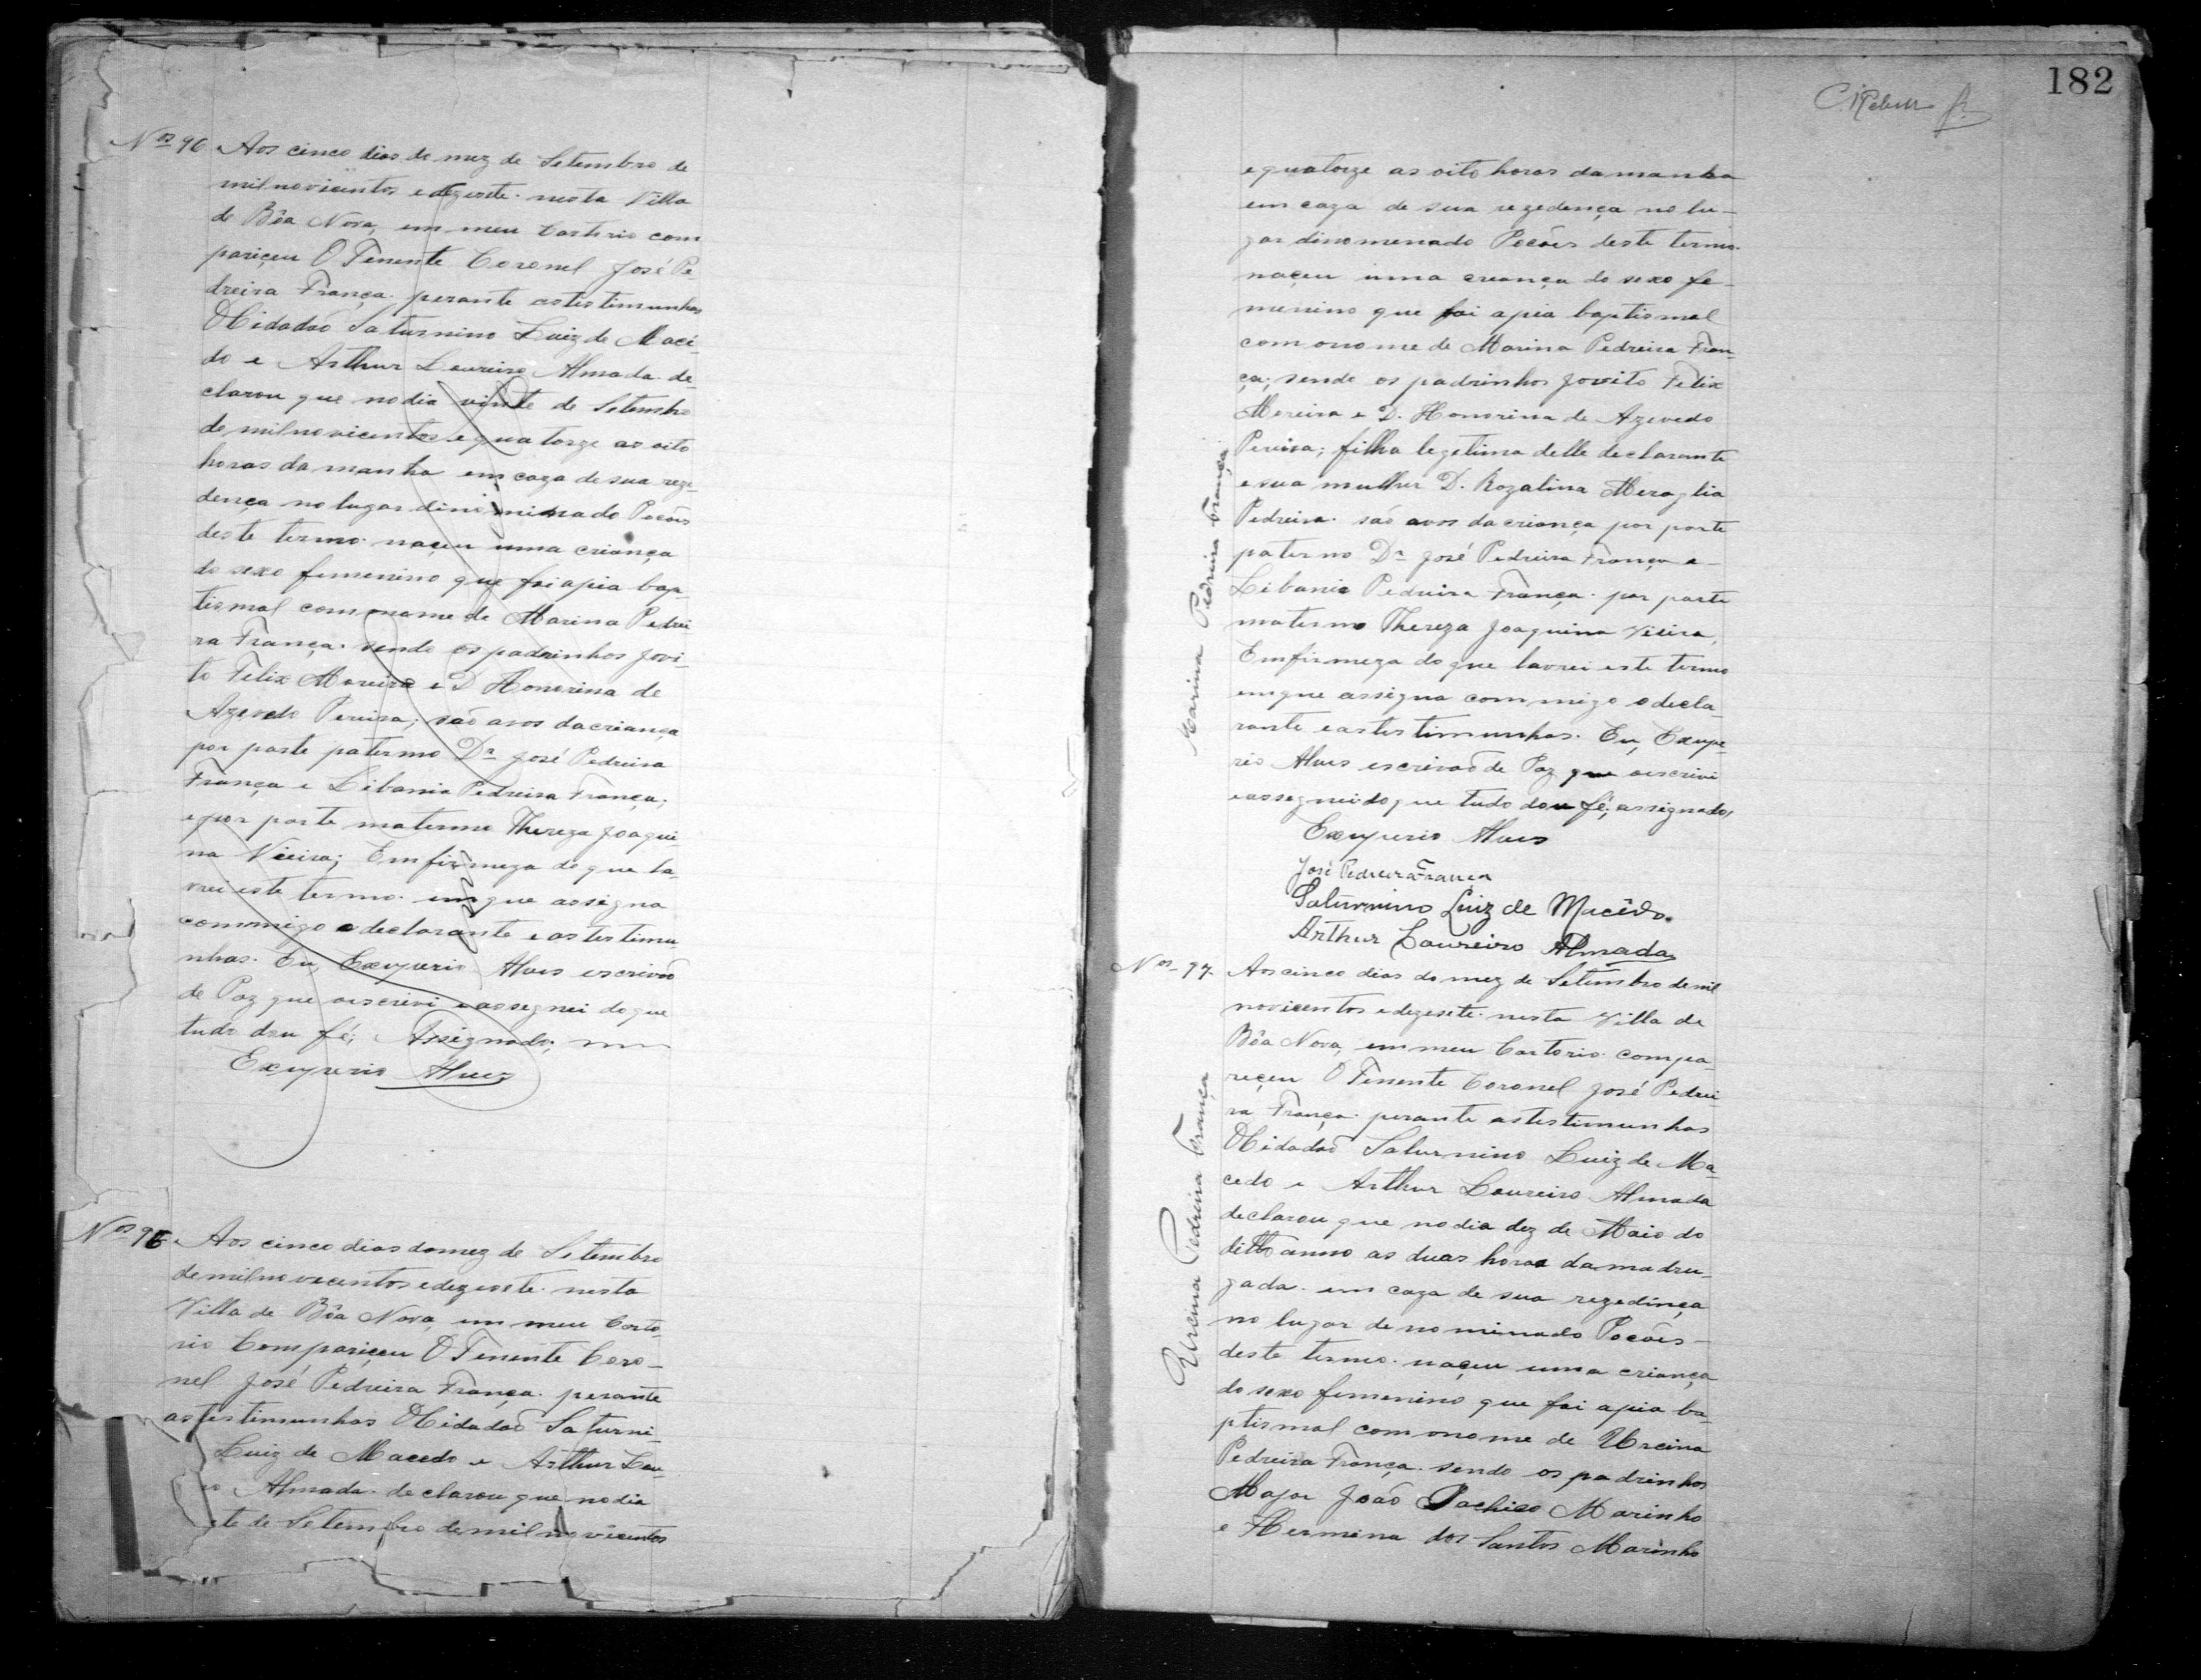 Nos 96 Aos cinco dias do mez de Setembro de
mil novicentos e dezesete. nesta Villa
de Bôa Nova, em meu Cartorio com
pariçeu O Tenente Coronel José Pe-
dreira França. perante astestimunhas
OCidadão Saturnino Luiz de Maci-
do e Arthur Loureiro Almada. de-
clarou que no dia vinte de Setembro
de mil novicentos e quatorze as oito
horas da manha em caza de sua reze-
dença no lugar dinominado Pocões
deste termo. naçeu uma criança
do sexo femenino que foi apia bap-
tismal com onome de Marina Pedrei
ra França. sendo os padrinhos Jovi-
to Felix Moreira e D Honorina de
Azevedo Pereira; são avos dacriança
por parte paterno Dr José Pedreira
França e Libania Pedreira França;
epor parte materno Thereza Joaqui
na Vieira; Emfirmeza do que la-
vrei este termo. em que assigna
commigo o declarante e astestimu
nhas. Eu, Exuperio Alves escrivaõ
de Paz que oescrivi e assegnei do que
tudo dou fé; Assignado;
Exuperio Alves
Nos 96. Aos cinco dias domez de Setembro
de mil novecentos e dezesete. nesta
Villa de Bôa Nova, em meu Carto-
rio Compariçeu O Tenente Coro-
nel José Pedreira França. perante
astestimunhas OCidadaõ Saturni-
Luiz de Macedo e Arthur Lou-
ro Almada. declarou que no dia
nte de Setembro de mil novicentos
182
equatorze as oito horas damanha
em caza de sua rezedença no lu-
gar dinomenado Pocões deste termo.
naçeu uma creança do sexo fe-
menino que foi apia baptismal
com onome de Marina Pedreira Fran-
ça; sendo os padrinhos Jovito Felix
Moreira e D. Honorina de Azevedo
Pereira; filha legetima delle declarante
e sua mulher D. Rozalina Meraglia
Pedreira. saõ avos da criança por parte
paterno Dr José Pedreira França e
Libania Pedreira França. por parte
materno Thereza Joaquina Vieira,
Emfirmeza do que lavrei este termo
emque assigna commigo o decla-
rante e astestimunhas. Eu, Exupe-
rio Alves escrivaõ de Paz que oescrivi
eassegnei doque tudo dou fé; assignado,
Exuperio Alves
José Pedreira França
Saturnino Luiz de Macêdo.
Arthur Loureiro Almada
Marina Pedreira França
Nos 97. Aos cinco dias do mez de Setembro de mil
novicentos e dezesete. nesta Villa de
Bôa Nova, em meu Cartorio. compa-
reçeu O Tenente Coronel José Pedrei-
ra França. perante astestimunhas
OCidadaõ Saturnino Luiz de Ma-
cedo e Arthur Loureiro Almada
declarou que no dia dez de Maio do
ditto anno as duas horas da madru-
gada. em caza de sua rezedinça
no lugar denominado Pocões
deste termo. naçeu uma criança
do sexo femenino que foi apia ba-
ptismal com onome de Urcina
Pedreira França. sendo os padrinhos
Major João Pachico Marinho
e Hermina dos Santos Marinho
Urcina Pedreira França